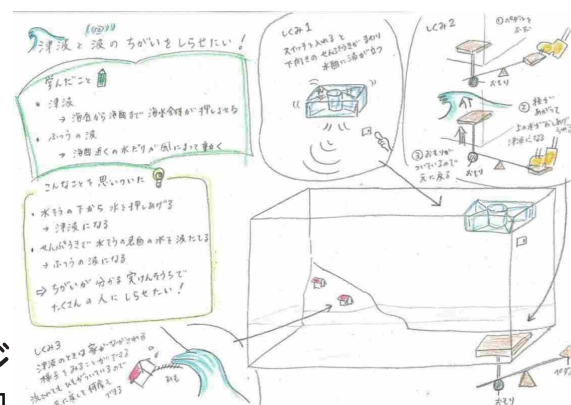 津波と波のちがいをしらせたい!
学んだこと
・津波
→海底から海面まで海水全体が押しよせる
・ふつうの波
→海面近くの水だけが風によって動く
こんなことを思いついた
・水そうの下から水を押しあげる
→津波になる
・せんぷうきで水そうの表面の水を波だてる
→ふつうの波になる
⇒ちがいが分かる実けんそうちで
たくさんの人にしらせたい!
しくみ1
スイッチを入れると
下向きのせんぷうきがまわり
水面に波が立つ
しくみ2
①ペダルを
ふむ
おもり
②板が
あがって
上の水がおしあげ
られる
津波になる
③おもりが
ついているので
元に戻る
おもり
しくみ3
津波のときは家がながされる
様子をみることができる
流されてもひもがついているので
元に戻して何度も
できる
おもり
ペダル
ジ